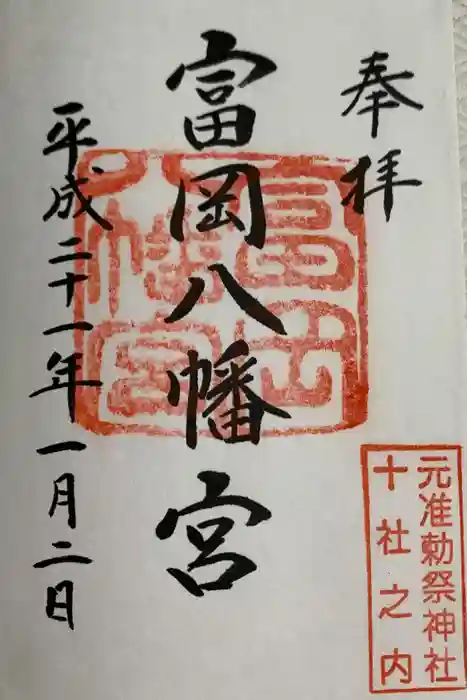 奉拝
富岡八幡宮
平成二十一年一月二日
元准勅祭神社
十社之内
富岡
八幡宮